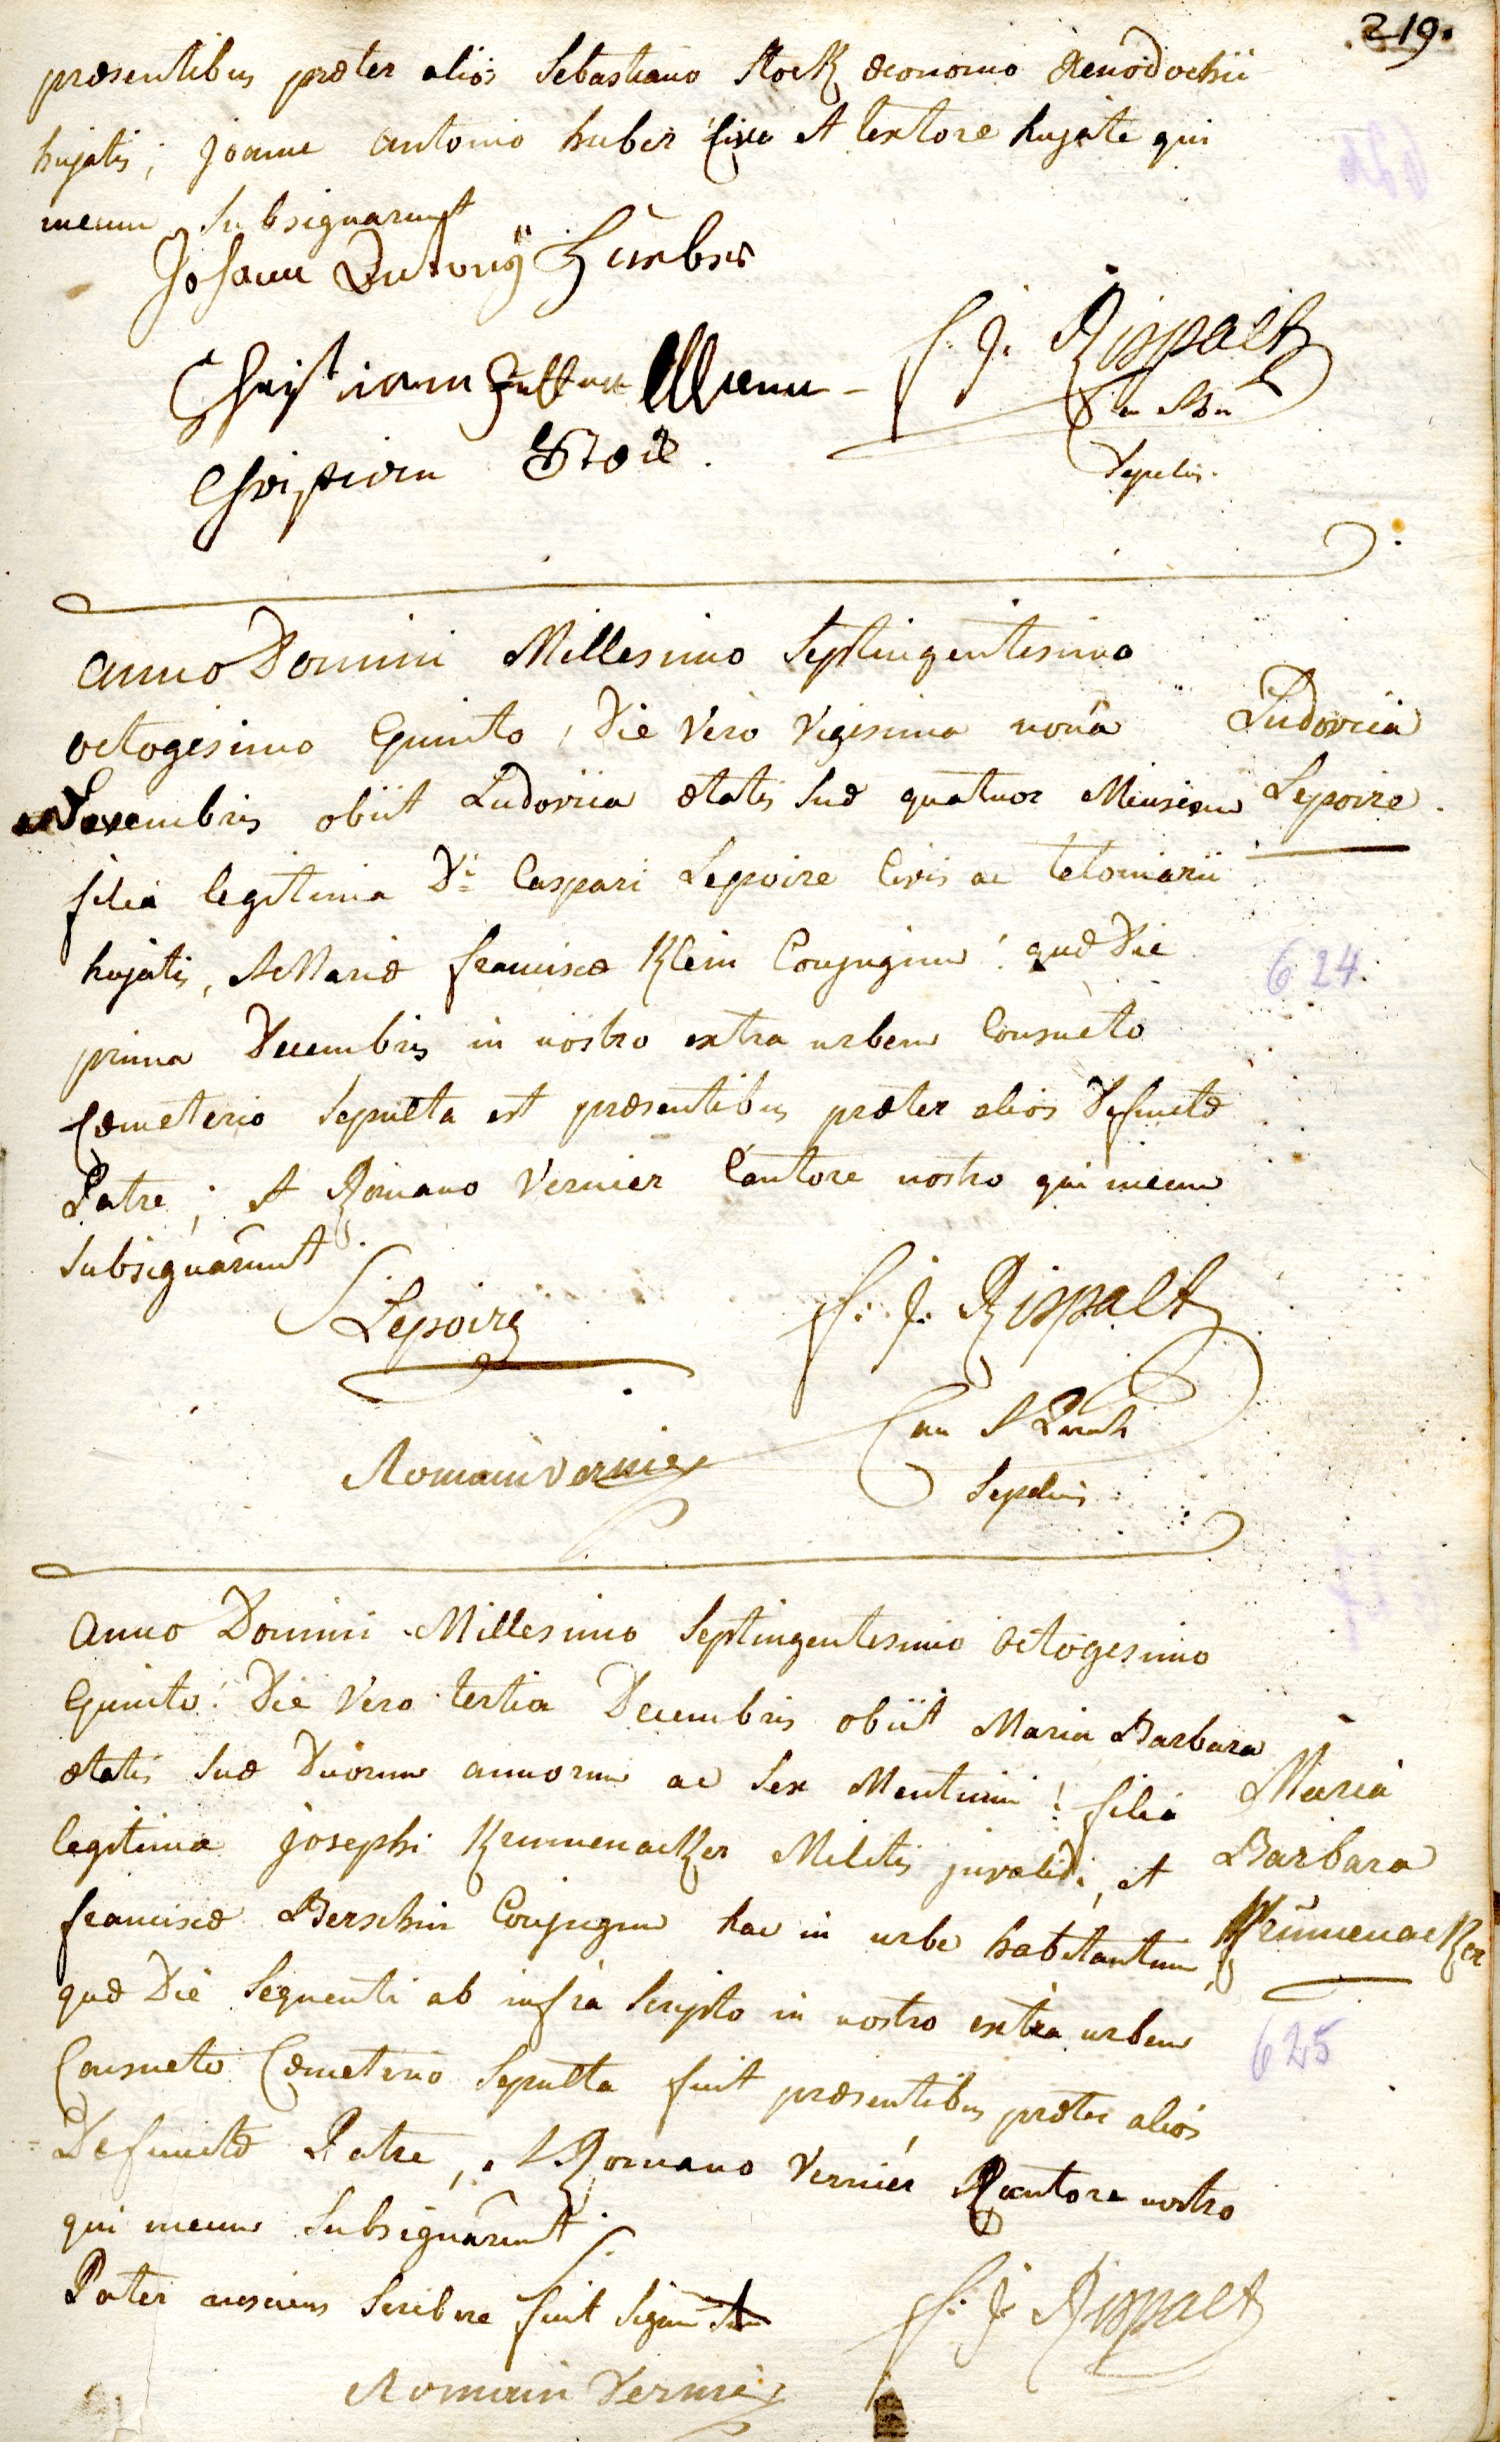 219.
præsentibus præter aliòs Sebastiano Stock æconomo Xenodochii
hujatis, Joanne Antonio huber Cive et textore hujate qui
mecum Subsignarunt
Johann Antonÿ Hueber
F. J. Rispalt
Christian
Sepeliens.
Christian Stock.
anno Domini Millesimo Septingentesimo
octogesimo Quinto, Die Verò Vigesima nonâ
Novembris obiit Ludovica ætatis Suæ quatuor Mensium
Ludovica
Lepoire.
filia legitima Di Caspari Lepoire Civis ac teloniarii
hujatis, et Mariæ franciscæ Klein Conjugum: quæ Die
624
prima Decembris in nostro extra urbem Consueto
Cæmeterio Sepulta est præsentibus præter aliòs Defunctæ
Patre, et Romano Vernier Cantore nostro qui mecum
Subsignârunt.
Lepoire
F. J. Rispalt
Romain vernier
Can
Sepeliens
anno Domini Millesimo Septingentesimo octogesimo
Quinto: Die Vero tertia Decembris obiit Maria Barbara
ætatis Suæ Duorum annorum ac Sex Mentium: filia
Maria
Barbara
Krummenacker
legitima Josephi Krummenacker Militis invalidi, et
franciscæ Berschin Conjugum hac in urbe habitantium,
quæ Die Sequenti ab infrà Scripto in nostro extra urbem
625
Consueto Cæmeterio Sepulta fuit præsentibus præter aliòs
Defunctæ Patre, et Romano Vernier Cantore nostro
qui mecum Subsignârunt.
Pater nesciens Scribere fecit Signum
F. J. Rispalt
Romain Vernier